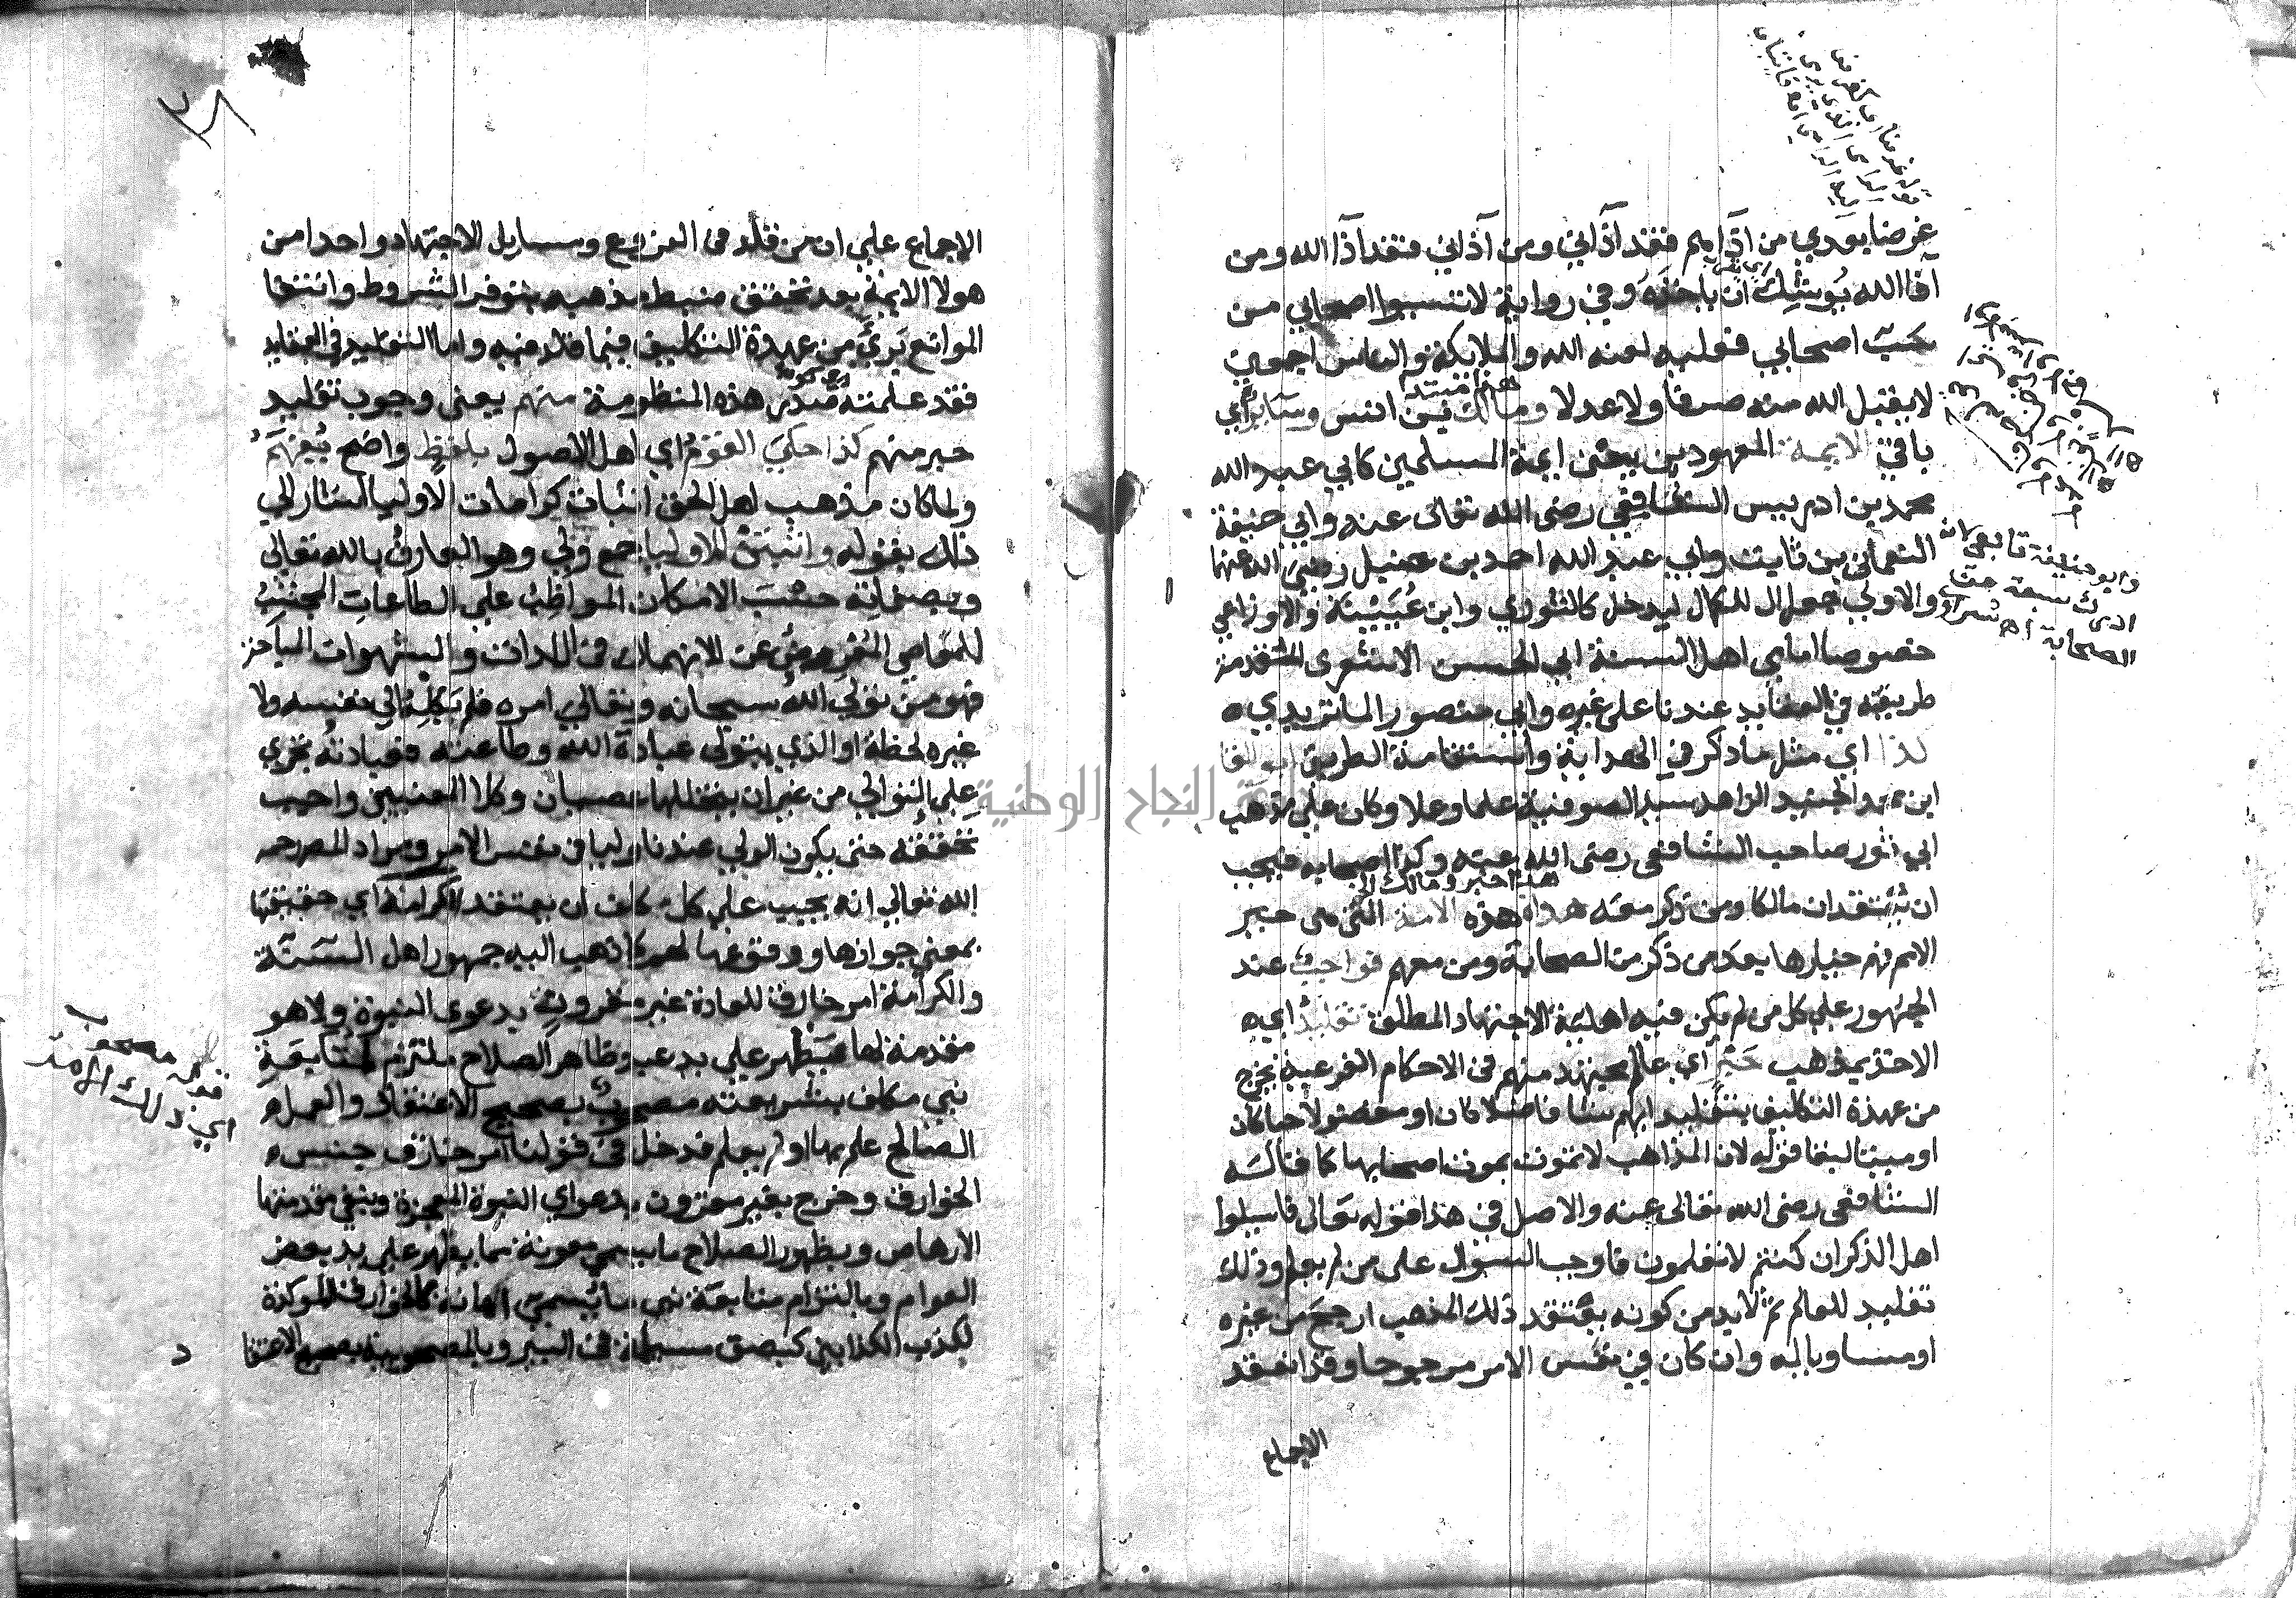 غرضا بعدي من اذاهم فقد آذاني ومن آذاني فقد آذا الله ومن
آذا الله يوشك ان ياخذه وفي رواية لا تسبوا اصحابي من
سب اصحابي فعليه لعنة الله والملايكة والناس اجمعين
لا يقبل الله منه صرفا ولا عدلا ومالك بن انس وساير اي
هذا مبتدا
باقي الايمة المعهودين يعني ايمة المسلمين كابي عبد الله
محمد بن ادريس الشافعي رضى الله تعالى عنه وابي حنيفة
النعمان بن ثابت وابي عبد الله احمد بن حنبل رضي الله عنهما
والاولى جعل ال للكمال ليدخل كالثوري وابن عُيَيْنة والاوزاعي
خصوصا امامي اهل السنة ابي الحسن الاشعرى المتقدمة
طريقته في العقايد عندنا على غيره وابي منصور الماتريدي
كذا اي مثل ما ذكر في الهداية واستقامة الطريق ابو القا
ابن محمد الجنيد الزاهد سيد الصوفية علما وعملا وكان على مذهب
ابي ثور صاحب الشافعى رضى الله عنه وكذا اصحابه فيجب
ان يعتقد ان مالكا ومن ذكر معه هداة هذه الامة التي هى خير
هداة خبر ومالك الخ
الامم فهم خيارها بعد من ذكر من الصحابة ومن معهم فواجب عند
الجمهور على كل من لم يكن فيه اهلية الاجتهاد المطلق تقليد اي
الاخذ بمذهب حَبْر اي عالم مجتهد منهم فى الاحكام الفرعية يخرج
من عهدة التكليف بتقليد ايهم شا فاضلا كان او مفضولا حيا كان
او ميتا لبقا قوله لان المذاهب لا تموت بموت اصحابها كما قاله
الشافعى رضى الله تعالى عنه والاصل في هذا قوله تعالى فاسيلوا
اهل الذكر ان كنتم لا تعلمون فاوجب السوال على من لم يعلم وذلك
تقليد للعالم ثم لا بد من كونه يعتقد ذلك المذهب ارجح من غيره
او مساويا له وان كان في نفس الامر مرجوحا وقد انعقد
الاجماع
وابو حنيفة تابعي لانه
ادرك سبعة من
الصحابة اهـ
الاجماع على ان من قلد فى الفروع ومسايل الاجتهاد واحدا من
هولا الايمة بعد تحقق ضبط مذهبه بتوفر الشروط وانتفا
الموانع برئ من عهدة التكليف فيما قلد فيه واما التقليد في العقايد
فقد علمته صدر هذه المنظومة منهم يعنى وجوب تقليد
حبر منهم كذا حكي القوم اي اهل الاصول بلفظ واضح يُفْهَم
ولما كان مذهب اهل الحق اثبات كرامات الاوليا اشار الي
ذلك بقوله واثبتن للاوليا جمع ولي وهو العارف بالله تعالي
وبصفاته حسب الامكان المواظب على الطاعات المجتنب
للمعاصي المعرض عن الانهماك فى اللذات والشهوات المباحة
فهو من تولي الله سبحانه وتعالي امره فلم يكله الي نفسه ولا
غيره لحظة او الذي يتولى عبادة الله وطاعته فعبادته تجري
على التوالي من غير ان يتخللها عصيان وكلا المعنيين واجب
تحققه حتى يكون الولي عندنا وليا فى نفس الامر ومراد المص رحمه
الله تعالي انه يجب علي كل مكلف ان يعتقد الكرامة اي حقيقتها
بمعنى جوازها ووقوعها لهم كما ذهب اليه جمهور اهل السنة
والكرامة امر خارق للعادة غير مقرون بدعوى النبوة ولا هو
مقدمة لها يظهر علي يد عبد ظاهر الصلاح ملتزم لمتابعة
نبي مكلف بشريعته مصحوب بصحيح الاعتقاد والعمل
الصالح علم بها او لم يعلم فدخل في قولنا امر خارق جنس
الخوارق وخرج بغير مقرون بدعواي النبوة المعجزة وبنفي مقدمتها
الارهاص وبظهور الصلاح ما يسمي معونة مما يظهر على يد بعض
العوام وبالتزام متابعة نبي ما يسمي اهانة كالخوارق الموكدة
لكذب الكذابين كبصق مسيلمة فى البير وبالمصحوبية بصحيح الاعتقا
د
قوله مصحوب
اي ذلك الامر
النجاح الوطنية